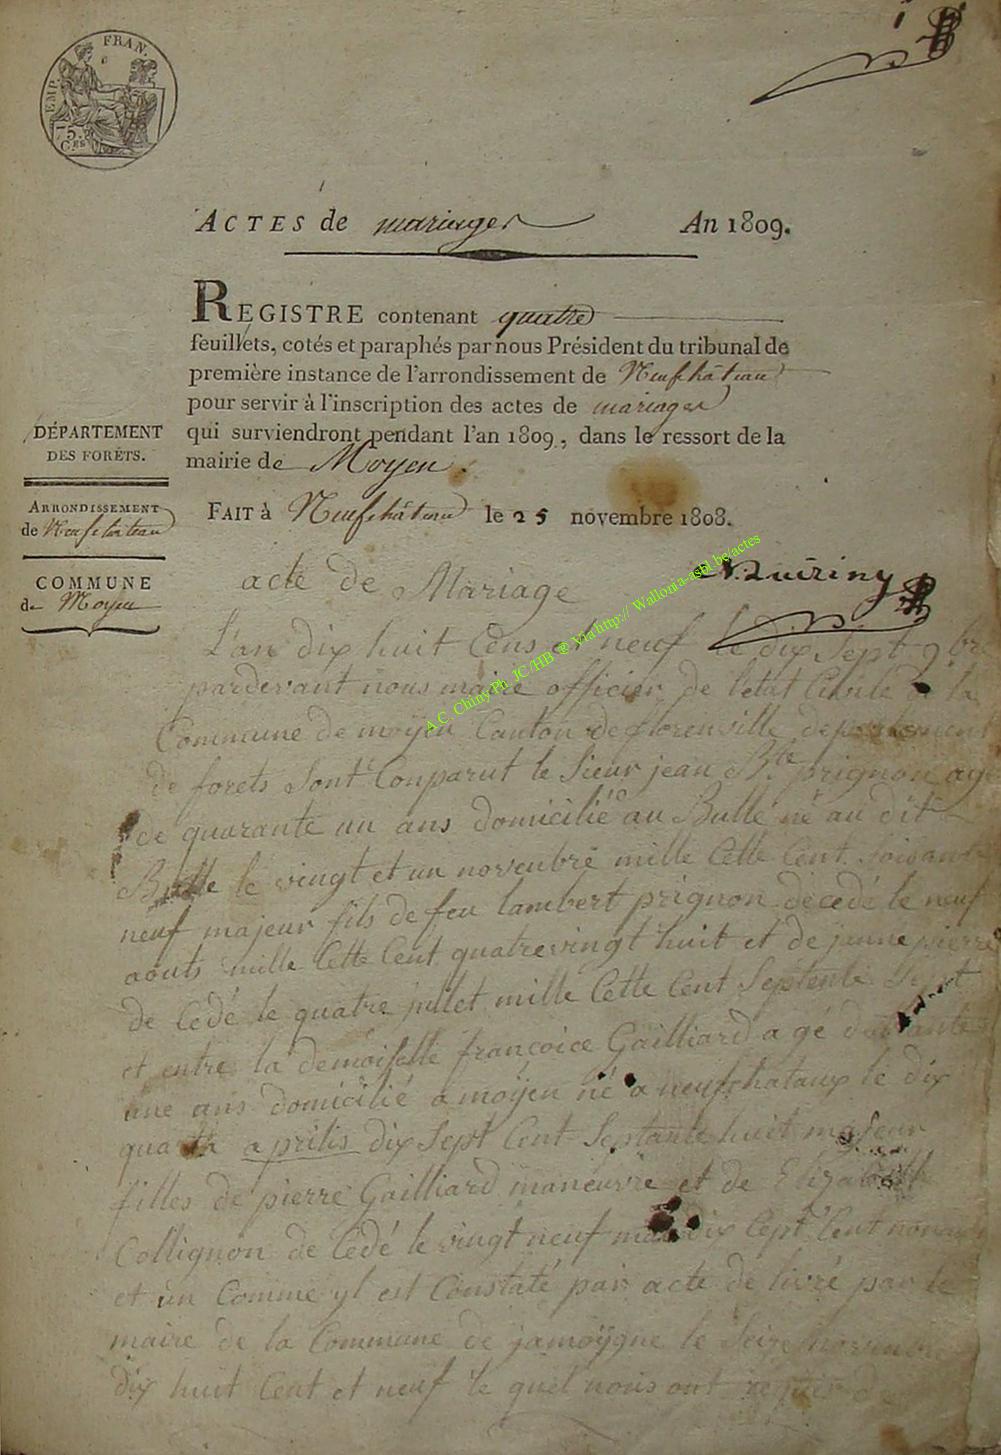 EMP. FRAN.
75.
Ces
1
ACTES de mariages An 1809.
REGISTRE contenant quatre
feuillets, cotés et paraphés par nous Président du tribunal de
première instance de l'arrondissement de Neufchâteau
pour servir à l'inscription des actes de mariages
qui surviendront pendant l'an 1809, dans le ressort de la
mairie de Moyen.
FAIT à Neufchâteau le 25 novembre 1808.
DÉPARTEMENT
DES FORÊTS.
ARRONDISSEMENT
de Neufchâteau
COMMUNE
de Moyen
A.C. Chiny Ph. JC/HB ® Via http:// Wallonia-asbl.be/actes
acte de Mariage
L'an dix huit Cens et neuf le dix Sept 9bre
pardevant nous maire officier de l'etat Civile la
Commune de moÿen Canton de florenville departement
de forets Sont Conparut le Sieur jean Bte prignon agé
de quarante un ans domicilié au Bulle né au dit
Bulle le vingt et un novenbre mille Cette Cent Soisante
neuf majeur fils de feu lambert prignon décedé le neuf
aouts mille Cette Cent quatrevingt huit et de janne pierre
de Cedé le quatre jullet mille Cette Cent Septente Sept
et entre la demoiselle francoice Gailliard agé
une ans domicilié a moÿen né a neufchataux le dix
aprilis dix Sept Cent Septante huit majeur
filles de pierre Gailliard maneuvre et de Elizabeth
Collignon de Cedé le vingt neuf dix Sept Cent
et un Comme yl est Constaté par acte de livré par le
maire de la Commune de jamoÿgne le Seize novenbre
dix huit Cent et neuf le quel nous ont